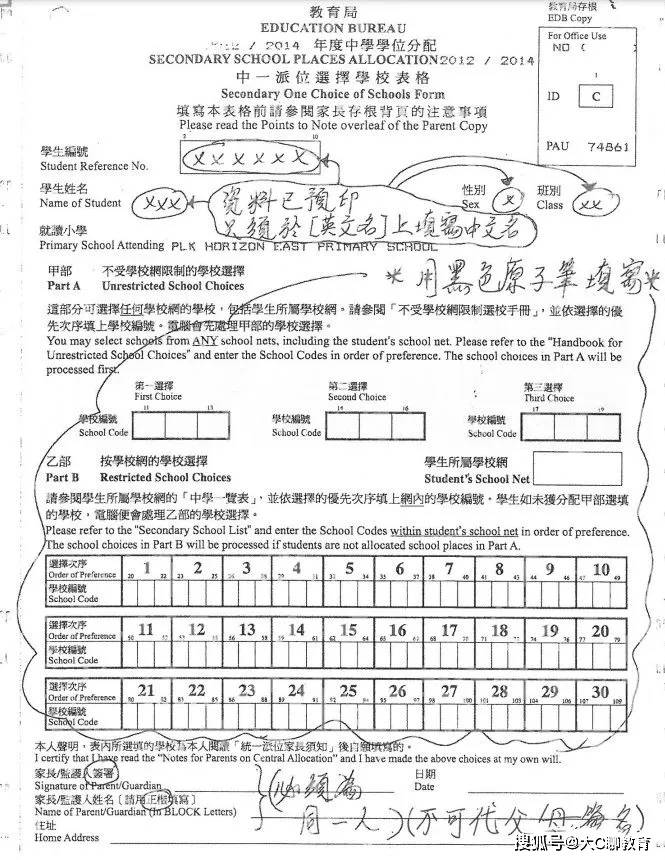 教育局
EDUCATION BUREAU
/ 2014 年度中學學位分配
SECONDARY SCHOOL PLACES ALLOCATION 2012 / 2014
中一派位選擇學校表格
Secondary One Choice of Schools Form
填寫本表格前請參閱家長存根背頁的注意事項
Please read the Points to Note overleaf of the Parent Copy
教育局存根
EDB Copy
For Office Use
NO (
1
ID C
PAU 74861
學生編號
Student Reference No.
XXXXXX
學生姓名
Name of Student
XXX
資料已預印
只須於[英文名]上填寫中文名
性別
Sex X
班別
Class XX
就讀小學
Primary School Attending PLK HORIZON EAST PRIMARY SCHOOL
*用黑色原子筆填寫*
甲部 不受學校網限制的學校選擇
Part A Unrestricted School Choices
這部分可選擇任何學校網的學校，包括學生所屬學校網。請參閱「不受學校網限制選校手冊」，並依選擇的優
先次序填上學校編號。電腦會先處理甲部的學校選擇。
You may select schools from ANY school nets, including the student's school net. Please refer to the "Handbook for
Unrestricted School Choices" and enter the School Codes in order of preference. The school choices in Part A will be
processed first.
第一選擇
First Choice
第二選擇
Second Choice
第三選擇
Third Choice
11 13
14 16
17 19
學校編號
School Code
學校編號
School Code
學校編號
School Code
乙部 按學校網的學校選擇
Part B Restricted School Choices
學生所屬學校網
Student's School Net
請參閱學生所屬學校網的「中學一覽表」，並依選擇的優先次序填上網內的學校編號。學生如未獲分配甲部選填
的學校，電腦便會處理乙部的學校選擇。
Please refer to the "Secondary School List" and enter the School Codes within student's school net in order of preference.
The school choices in Part B will be processed if students are not allocated school places in Part A.
選擇次序
Order of Preference
1 2 3 4 5 6 7 8 9 10
學校編號
School Code
選擇次序
Order of Preference
11 12 13 14 15 16 17 18 19 20
學校編號
School Code
選擇次序
Order of Preference
21 22 23 24 25 26 27 28 29 30
學校編號
School Code
本人聲明，表內所選填的學校為本人閱讀「統一派位家長須知」後自願填寫的。
I certify that I have read the "Notes for Parents on Central Allocation" and I have made the above choices at my own will.
家長/監護人簽署
Signature of Parent/Guardian
日期
Date
家長/監護人姓名〔請用正楷填寫〕
Name of Parent/Guardian (in BLOCK Letters)
必須為
同一人
(不可代父/母簽名)
住址
Home Address
搜狐号@大C聊教育